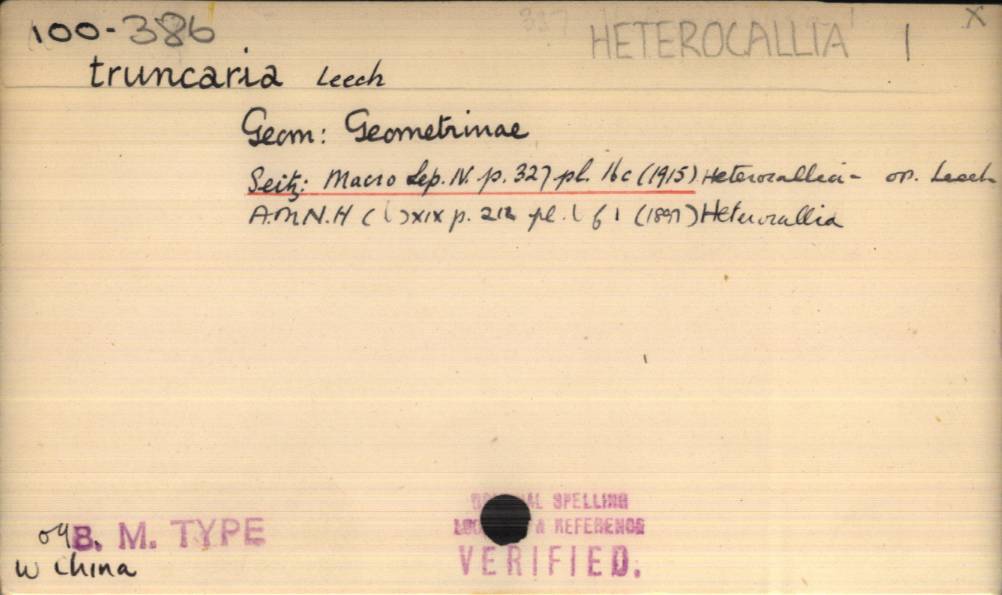 100-386 HETEROCALLIA 1 X
truncaria Leech
Geom: Geometrinae
Seitz: Macro Lep. IV. p. 327 pl. 16c (1915) Heterocallia - op. Leech
A.M.N.H (6) XIX p. 212 pl. 6 f 1 (1897) Heterocallia
B. M. TYPE
W China
SPELLING
REFERENCE
VERIFIED.